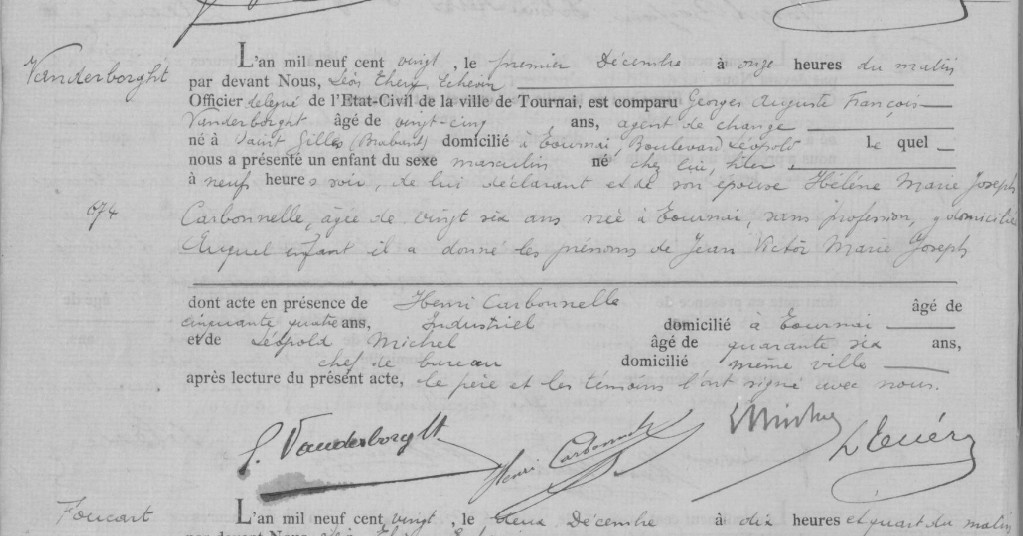 Vanderborght
674
L'an mil neuf cent vingt, le premier Décembre à onze heures du matin
par devant Nous, Léon Théry, Echevin
Officier délégué de l'Etat-Civil de la ville de Tournai, est comparu Georges Auguste François
Vanderborght âgé de vingt-cinq ans, agent de change
né à Saint Gilles (Brabant) domicilié à Tournai, Boulevard Léopold Le quel
nous a présenté un enfant du sexe masculin né chez lui, hier
à neuf heures soir, de lui déclarant et de son épouse Hélène Marie Joseph
Carbonnelle, âgée de vingt six ans née à Tournai, sans profession, y domiciliée
Auquel enfant il a donné les prénoms de Jean Victor Marie Joseph
dont acte en présence de Henri Carbonnelle âgé de
cinquante quatre ans, Industriel domicilié à Tournai
et de Léopold Michel âgé de quarante six ans,
chef de bureau domicilié même ville
après lecture du présent acte, le père et les témoins l'ont signé avec nous.
G. Vanderborght Henri Carbonnelle LMichel
Foucart
L'an mil neuf cent vingt, le deux Décembre à dix heures et quart du matin
par devant Nous